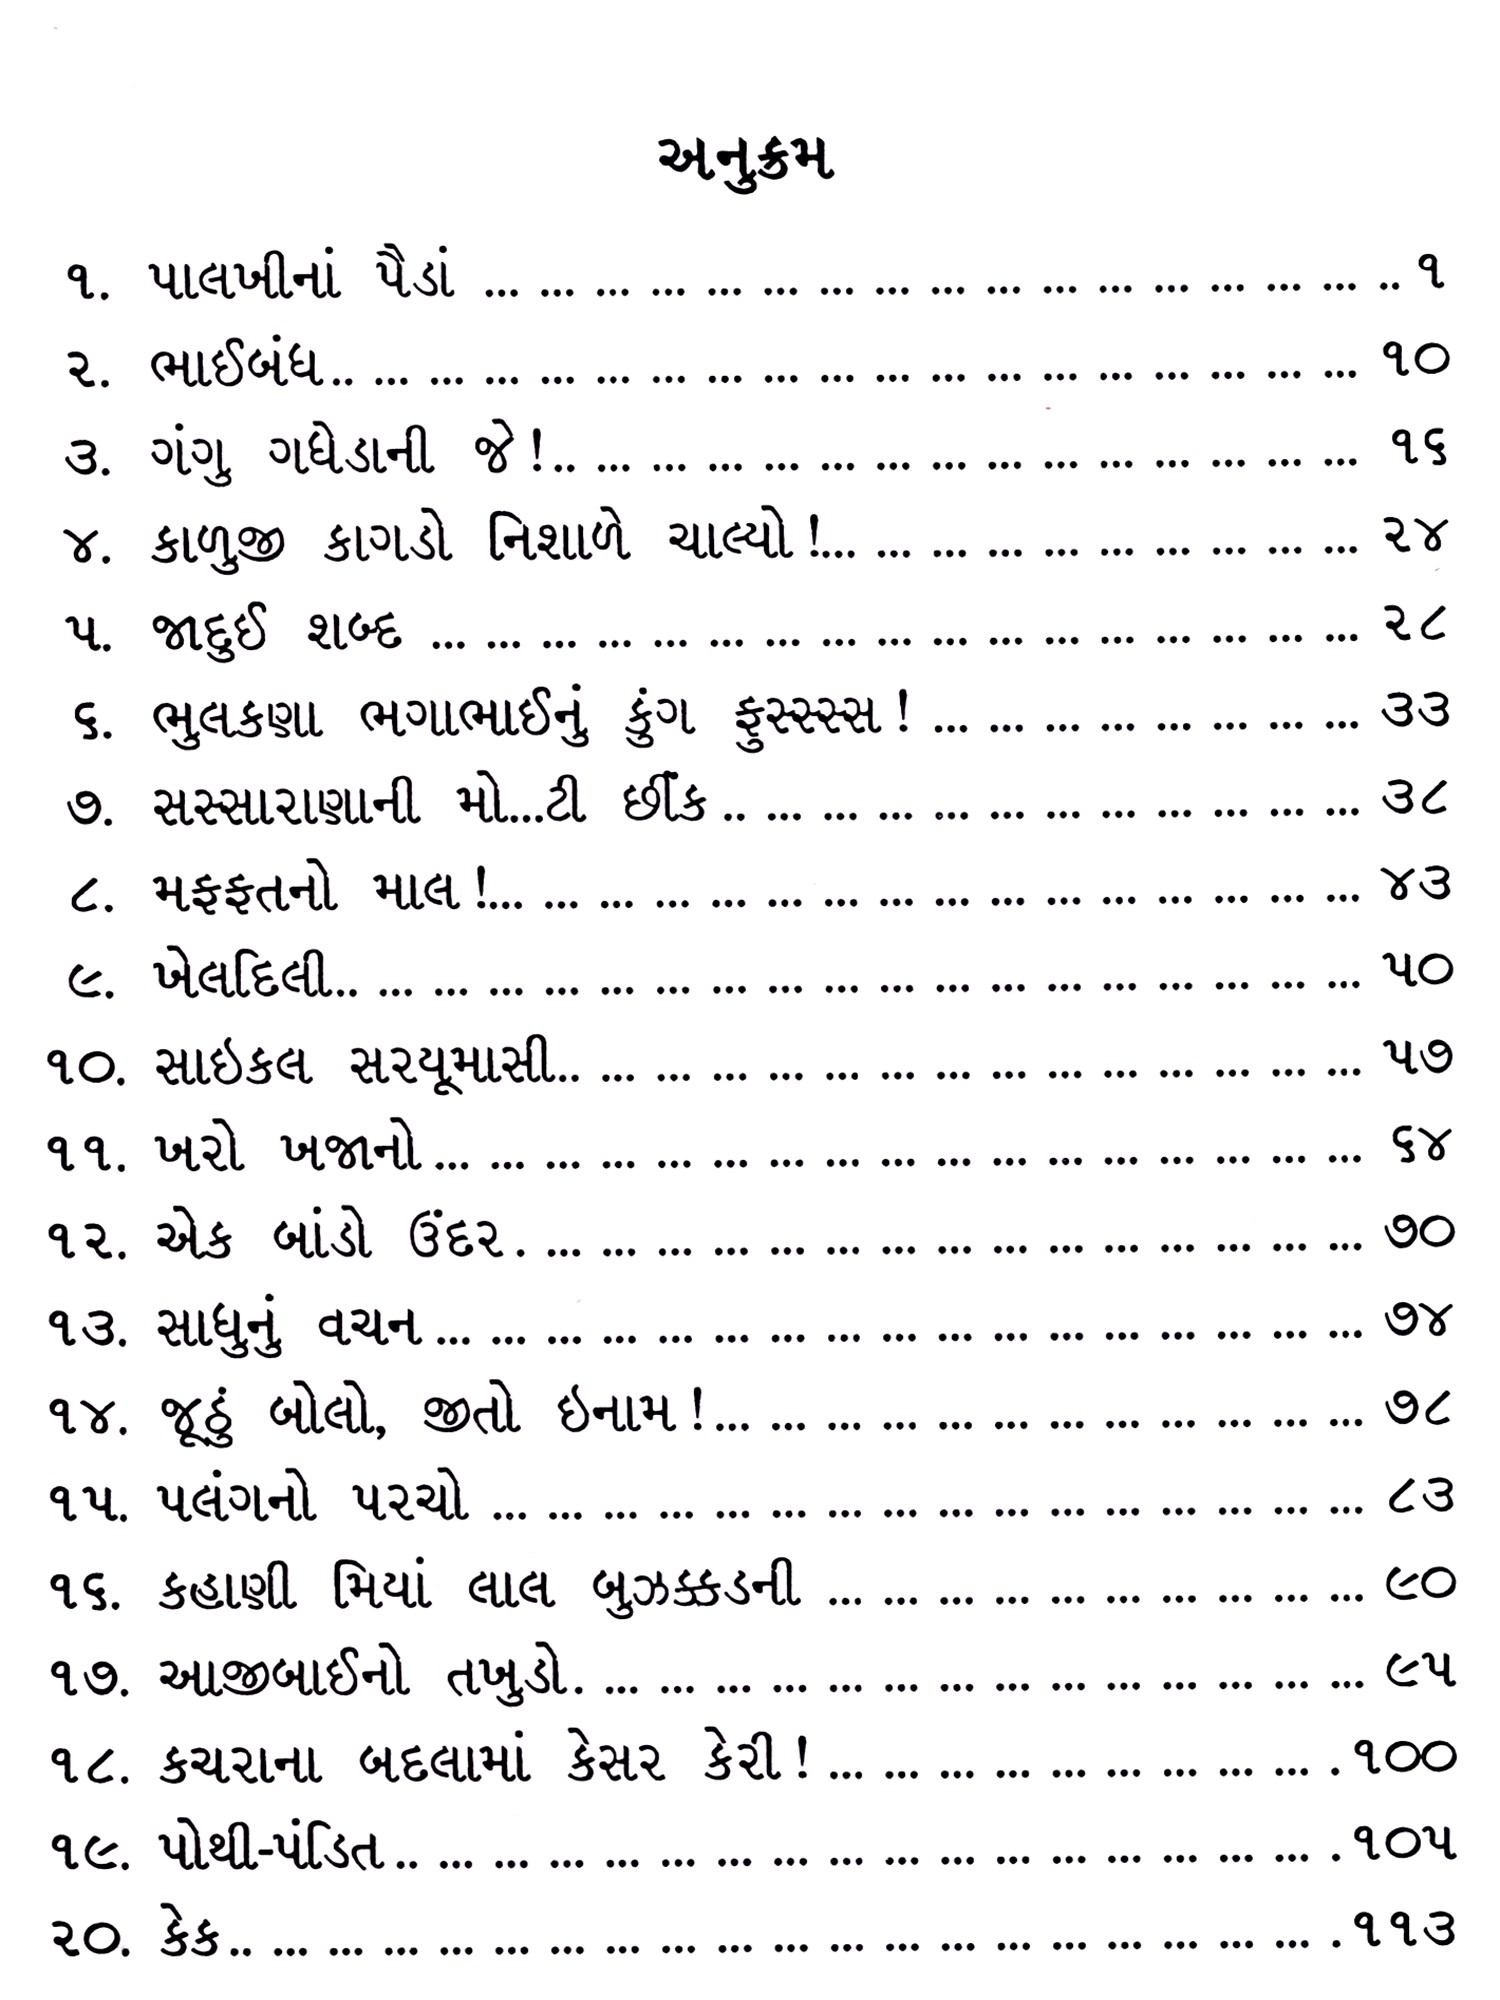 અનુક્રમ
૧. પાલખીનાં પૈડાં ... ... ... ... ... ... ... ... ... ... ... ... ... ... ... ... .. ૧
૨. ભાઈબંધ.. ... ... ... ... ... ... ... ... ... ... ... ... ... ... ... ... ... ... ૧૦
૩. ગંગુ ગધેડાની જે!.. ... ... ... ... ... ... ... ... ... ... ... ... ... ... ૧૬
૪. કાળુજી કાગડો નિશાળે ચાલ્યો!... ... ... ... ... ... ... ... ... ... ૨૪
૫. જાદુઈ શબ્દ ... ... ... ... ... ... ... ... ... ... ... ... ... ... ... ... ... ૨૮
૬. ભુલકણા ભગાભાઈનું કુંગ ફુસ્સ્સ્સ! ... ... ... ... ... ... ... ... ૩૩
૭. સસ્સારાણાની મો...ટી છીંક .. ... ... ... ... ... ... ... ... ... ... ... ૩૮
૮. મફફતનો માલ!... ... ... ... ... ... ... ... ... ... ... ... ... ... ... ... ૪૩
૯. ખેલદિલી.. ... ... ... ... ... ... ... ... ... ... ... ... ... ... ... ... ... ... ૫૦
૧૦. સાઇકલ સરયૂમાસી.. ... ... ... ... ... ... ... ... ... ... ... ... ... ... ૫૭
૧૧. ખરો ખજાનો... ... ... ... ... ... ... ... ... ... ... ... ... ... ... ... ... ૬૪
૧૨. એક બાંડો ઉંદર. ... ... ... ... ... ... ... ... ... ... ... ... ... ... ... ૭૦
૧૩. સાધુનું વચન... ... ... ... ... ... ... ... ... ... ... ... ... ... ... ... ... ૭૪
૧૪. જૂઠું બોલો, જીતો ઇનામ!... ... ... ... ... ... ... ... ... ... ... ... ૭૮
૧૫. પલંગનો પરચો ... ... ... ... ... ... ... ... ... ... ... ... ... ... ... ... ૮૩
૧૬. કહાણી મિયાં લાલ બુઝક્કડની ... ... ... ... ... ... ... ... ... ... ૯૦
૧૭. આજીબાઈનો તખુડો. ... ... ... ... ... ... ... ... ... ... ... ... ... ... ૯૫
૧૮. કચરાના બદલામાં કેસર કેરી!... ... ... ... ... ... ... ... ... . ૧૦૦
૧૯. પોથી-પંડિત.. ... ... ... ... ... ... ... ... ... ... ... ... ... ... ... ... . ૧૦૫
૨૦. કેક.. ... ... ... ... ... ... ... ... ... ... ... ... ... ... ... ... ... ... ... . ૧૧૩